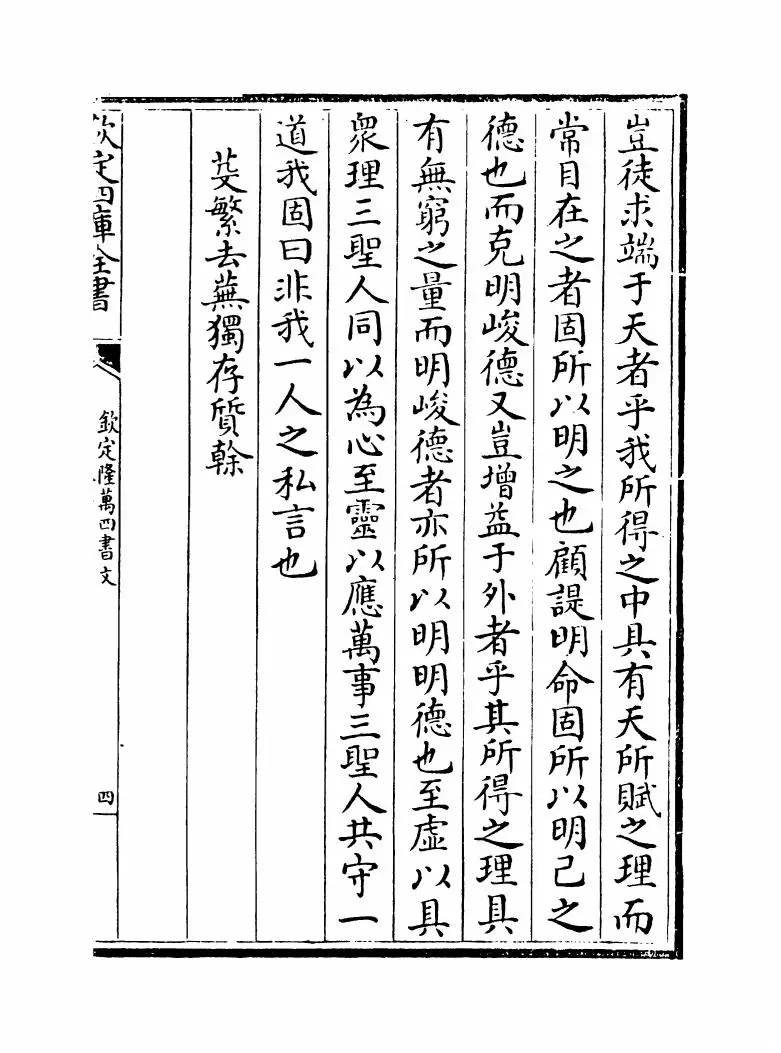 豈徒求端于天者乎我所得之中具有天所賦之理而
常目在之者固所以明之也顧諟明命固所以明己之
德也而克明峻德又豈增益于外者乎其所得之理具
有無窮之量而明峻德者亦所以明明德也至虛以具
衆理三聖人同以為心至靈以應萬事三聖人共守一
道我固曰非我一人之私言也
芟繁去蕪獨存質幹
欽定四庫全書
欽定隆萬四書文
四